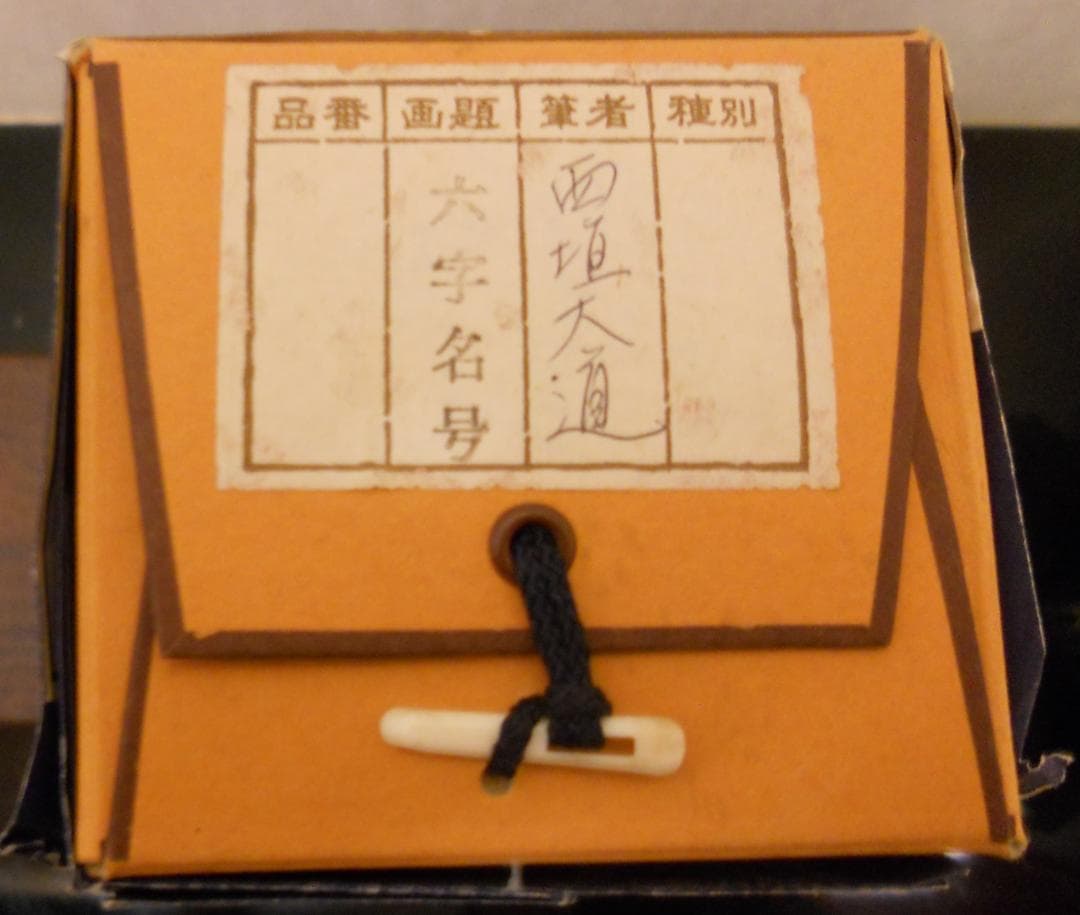 品番 画題 筆者 種別
六字名号
西垣大道